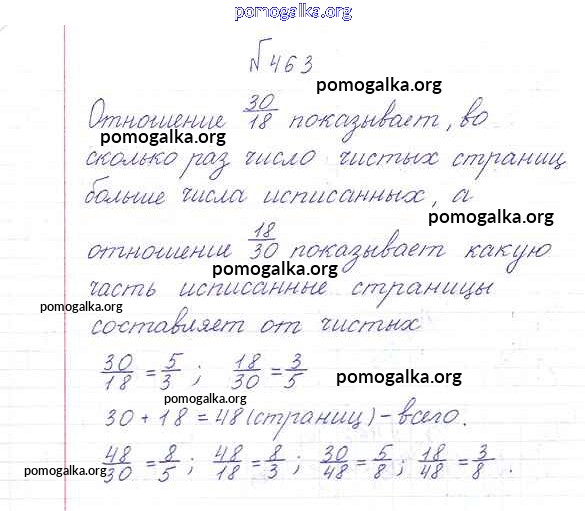 pomogalka.org
№ 463
pomogalka.org
Отношение 30/18 показывает, во
pomogalka.org
сколько раз число чистых страниц
больше числа исписанных, а
pomogalka.org
отношение 18/30 показывает какую
pomogalka.org
часть исписанные страницы
pomogalka.org
составляет от чистых
30/18 = 5/3 ; 18/30 = 3/5
pomogalka.org
pomogalka.org
30 + 18 = 48 (страниц) - всего.
48/30 = 8/5 ; 48/18 = 8/3 ; 30/48 = 5/8 ; 18/48 = 3/8 .
pomogalka.org